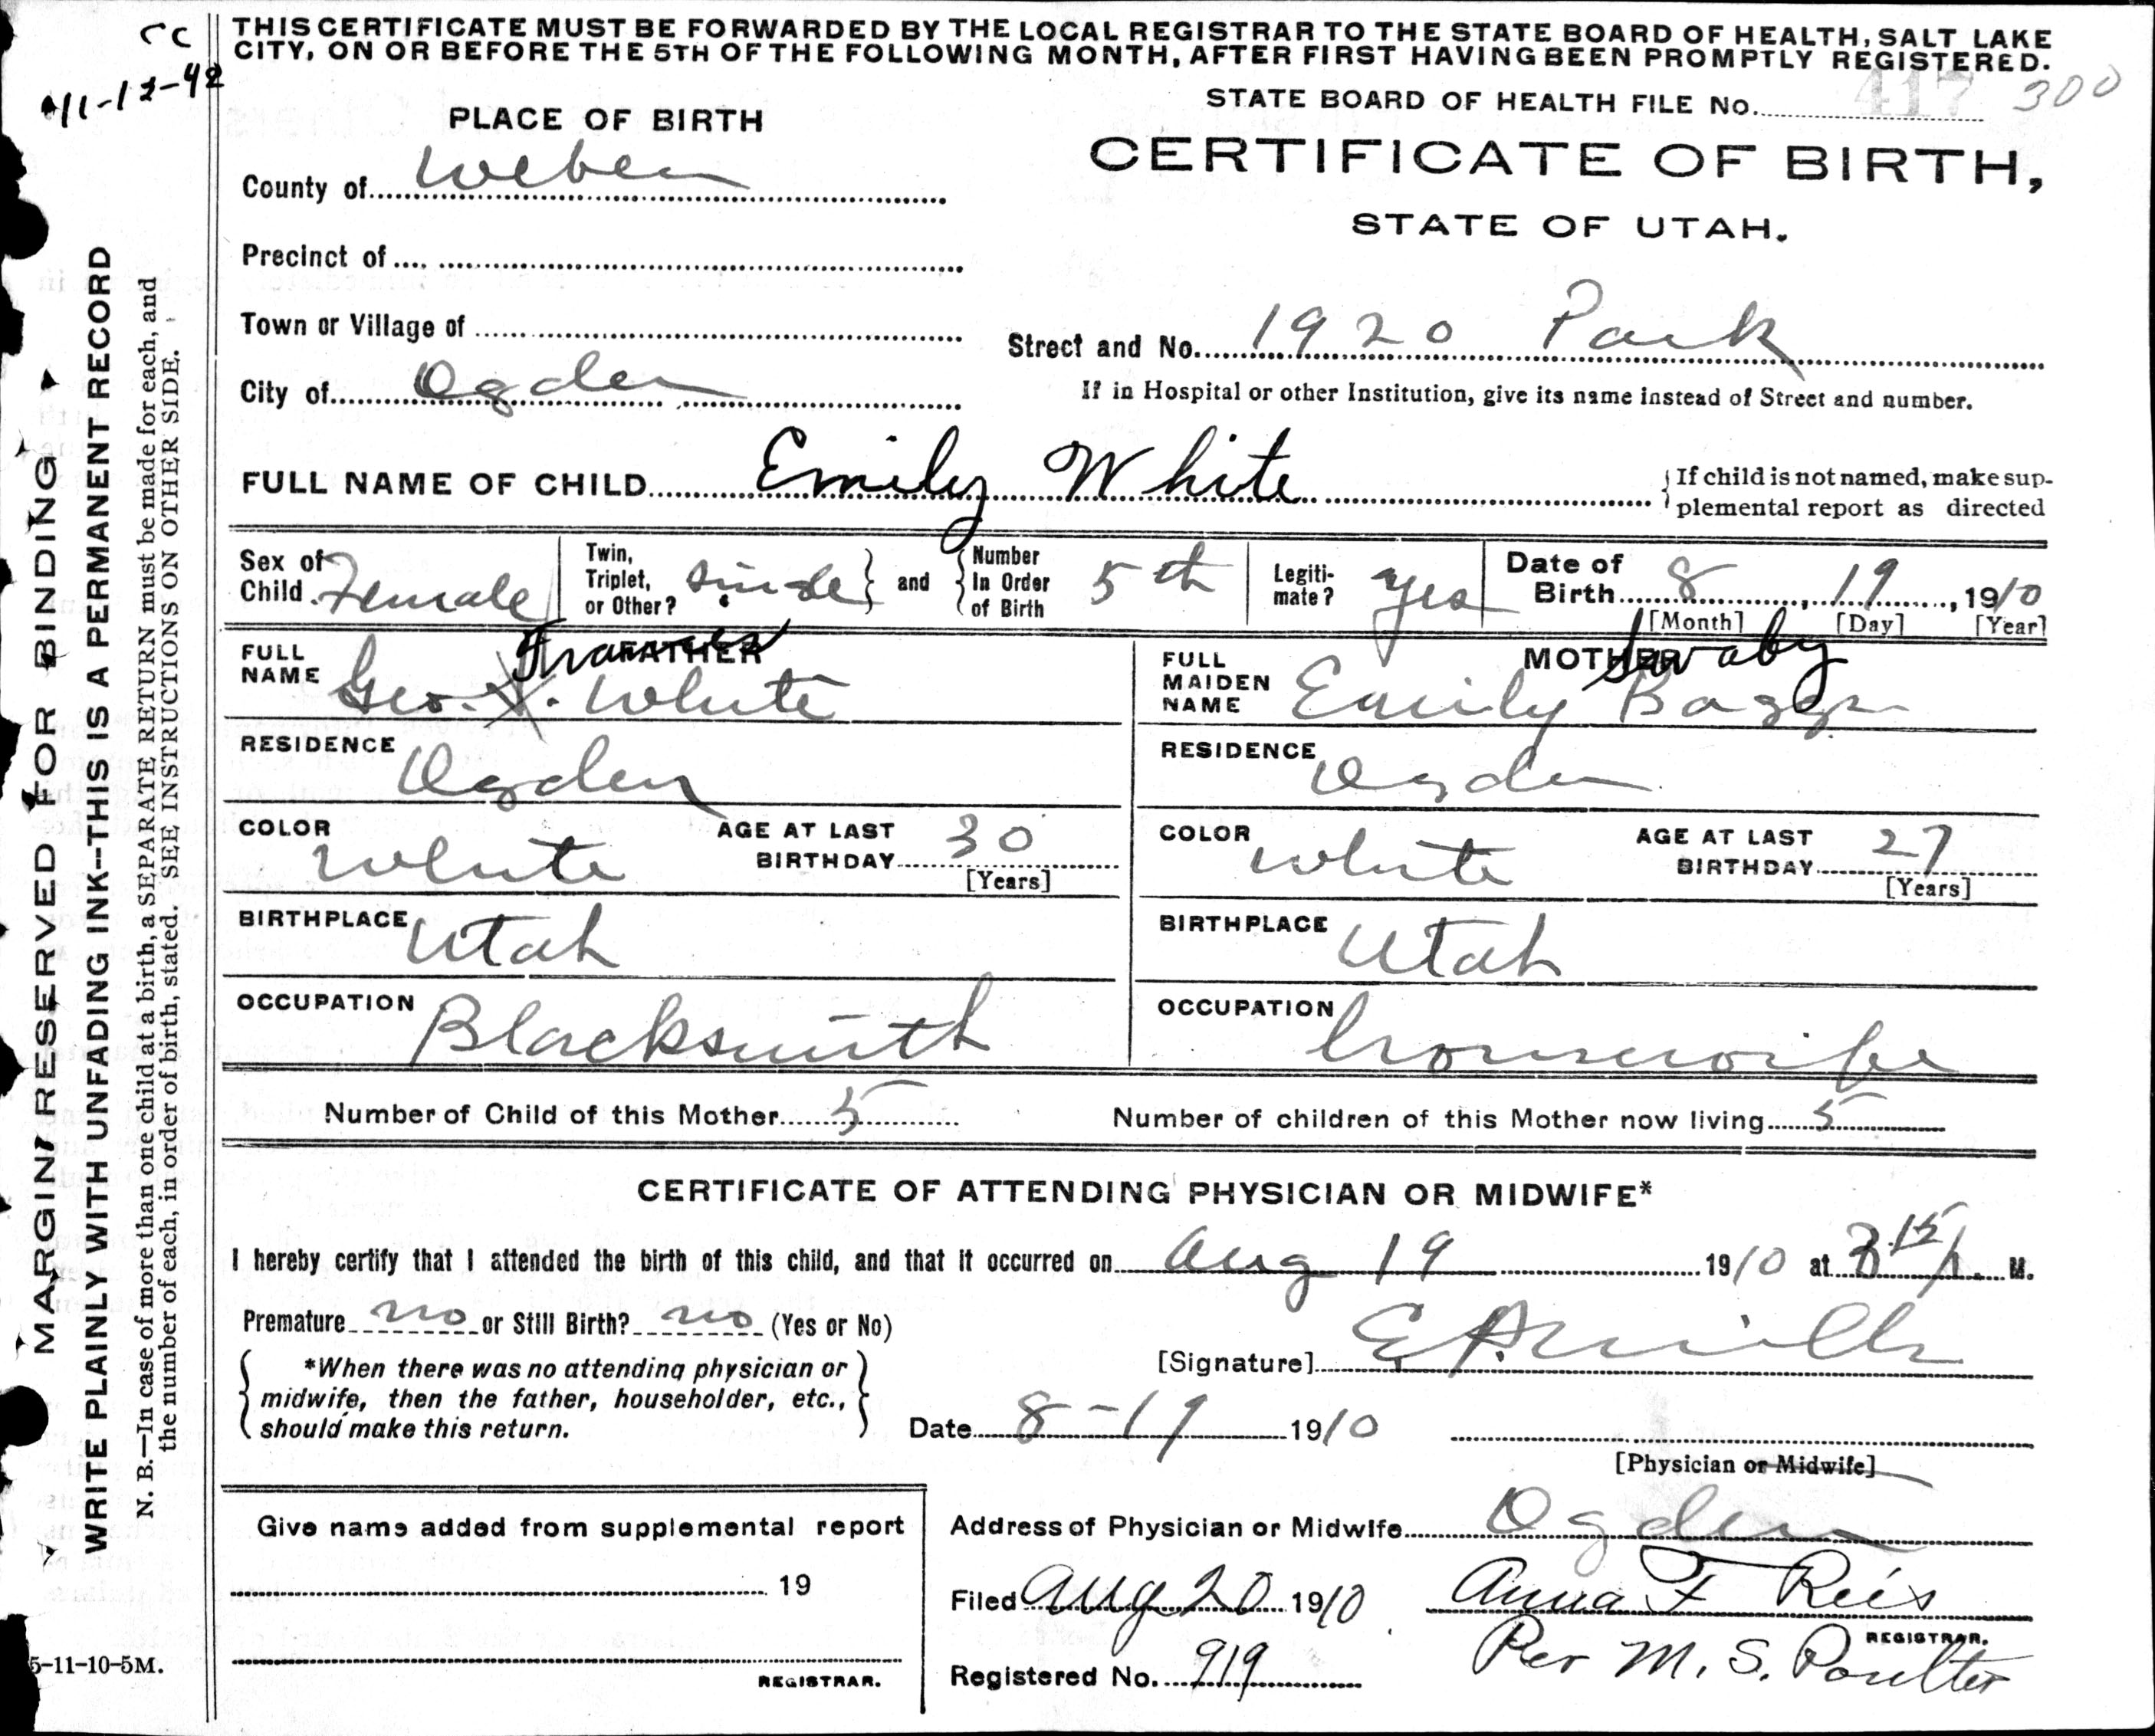 THIS CERTIFICATE MUST BE FORWARDED BY THE LOCAL REGISTRAR TO THE STATE BOARD OF HEALTH, SALT LAKE
CITY, ON OR BEFORE THE 5TH OF THE FOLLOWING MONTH, AFTER FIRST HAVING BEEN PROMPTLY REGISTERED.
cc
11-12-42
STATE BOARD OF HEALTH FILE No. 417 300
PLACE OF BIRTH
CERTIFICATE OF BIRTH,
STATE OF UTAH.
County of Weber
Precinct of
Town or Village of
Street and No. 1920 Park
City of Ogden
If in Hospital or other Institution, give its name instead of Street and number.
FULL NAME OF CHILD Emily White
If child is not named, make sup-
plemental report as directed
Sex of Child. Female
Twin, Triplet, or Other? Single
and
Number In Order of Birth 5th
Legiti-mate? yes
Date of Birth 8, 19, 1910
[Month] [Day] [Year]
FATHER
FULL NAME Geo. Frances White
RESIDENCE Ogden
COLOR White AGE AT LAST BIRTHDAY 30 [Years]
BIRTHPLACE Utah
OCCUPATION Blacksmith
MOTHER
FULL MAIDEN NAME Emily Swaby Baggs
RESIDENCE Ogden
COLOR White AGE AT LAST BIRTHDAY 27 [Years]
BIRTHPLACE Utah
OCCUPATION housewife
Number of Child of this Mother 5 Number of children of this Mother now living 5
CERTIFICATE OF ATTENDING PHYSICIAN OR MIDWIFE*
I hereby certify that I attended the birth of this child, and that it occurred on Aug 19 1910 at 3 15 A. M.
Premature no or Still Birth? no (Yes or No)
*When there was no attending physician or
midwife, then the father, householder, etc.,
should make this return.
[Signature]
Date 8-19 1910
[Physician or Midwife]
Give name added from supplemental report
19
REGISTRAR.
Address of Physician or Midwife Ogden
Filed Aug 20 1910 Anna F Reis
REGISTRAR.
Registered No. 919 Per M. S. Poulter
5-11-10-5M.
MARGIN RESERVED FOR BINDING
WRITE PLAINLY WITH UNFADING INK--THIS IS A PERMANENT RECORD
N. B.—In case of more than one child at a birth, a SEPARATE RETURN must be made for each, and
the number of each, in order of birth, stated. SEE INSTRUCTIONS ON OTHER SIDE.